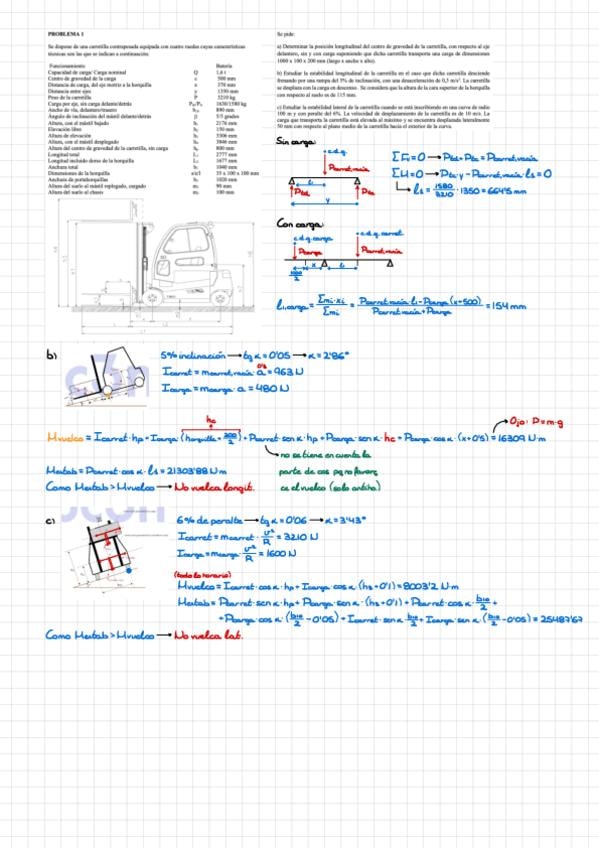 PROBLEMA 1
Se dispone de una carretilla contrapesada equipada con cuatro ruedas cuyas características
técnicas son las que se indican a continuación.
Funcionamiento Batería
Capacidad de carga/ Carga nominal Q 1,6 t
Centro de gravedad de la carga c 500 mm
Distancia de carga, del eje motriz a la horquilla x 370 mm
Distancia entre ejes y 1350 mm
Peso de la carretilla P 3210 kg
Carga por eje, sin carga delante/detrás 1630/1580 kg
Ancho de vía, delantera/trasera b₁₀ 890 mm
Ángulo de inclinación del mástil delante/detrás β 5/5 grados
Altura, con el mástil bajado h₁ 2176 mm
Elevación libre h₂ 150 mm
Altura de elevación h₃ 3306 mm
Altura, con el mástil desplegado h₄ 3846 mm
Altura del centro de gravedad de la carretilla, sin carga hₚ 800 mm
Longitud total L₁ 2777 mm
Longitud incluido dorso de la horquilla L₂ 1677 mm
Anchura total b₁ 1040 mm
Dimensiones de la horquilla s/e/l 35 x 100 x 100 mm
Anchura de portahorquillas b₃ 1020 mm
Altura del suelo al mástil replegado, cargado m₁ 90 mm
Altura del suelo al chasis m₂ 100 mm
Se pide:
a) Determinar la posición longitudinal del centro de gravedad de la carretilla, con respecto al eje
delantero, sin y con carga suponiendo que dicha carretilla transporta una carga de dimensiones
1000 x 100 x 200 mm (largo x ancho x alto).
b) Estudiar la estabilidad longitudinal de la carretilla en el caso que dicha carretilla descienda
frenando por una rampa del 5% de inclinación, con una desaceleración de 0,3 m/s². La carretilla
se desplaza con la carga en descenso. Se considera que la altura de la cara superior de la horquilla
con respecto al suelo es de 115 mm.
c) Estudiar la estabilidad lateral de la carretilla cuando se está inscribiendo en una curva de radio
100 m y con peralte del 6%. La velocidad de desplazamiento de la carretilla es de 10 m/s. La
carga que transporta la carretilla está elevada al máximo y se encuentra desplazada lateralmente
50 mm con respecto al plano medio de la carretilla hacia el exterior de la curva.
Sin carga:
c.d.g.
Pcarret.vacía
l₁
Ptd
Pta
y
ΣFᵢ=0 → Ptd+Pta = Pcarret.vacía
ΣM=0 → Pta·y - Pcarret.vacía·l₁ = 0
l₁ = 1580/3210 · 1350 = 664'5 mm
Con carga:
c.d.g. carga
c.d.g. carret
Pcarga
Pcarret.vacía
x
l₁
1000/2
l₁,carga = Σmᵢ·xᵢ/Σmᵢ = Pcarret.vacía·l₁ - Pcarga·(x+500)/Pcarret.vacía + Pcarga = 154 mm
b)
5% inclinación → tg α = 0'05 → α = 2'86°
Icarret = mcarret.vacía · a = 963 N
0'3
Icarga = mcarga · a = 480 N
hc
Ojo: P=m·g
Mvuelco = Icarret·hp + Icarga·(horquilla + 200/2) + Pcarret·sen α·hp + Pcarga·sen α·hc + Pcarga·cos α·(x+0'5) = 16309 N·m
no se tiene en cuenta la
parte de cos pq no favorc
ce el vuelco (solo antiho)
Mestab = Pcarret·cos α·l₁ = 21303'88 N·m
Como Mestab > Mvuelco → No vuelca longit.
c)
6% de peralte → tg α = 0'06 → α = 3'43°
Icarret = mcarret · v²/R = 3210 N
Icarga = mcarga · v²/R = 1600 N
(todo lo horario)
Mvuelco = Icarret·cos α·hp + Icarga·cos α·(h₃+0'1) = 8003'2 N·m
Mestab = Pcarret·sen α·hp + Pcarga·sen α·(h₃+0'1) + Pcarret·cos α·b₁₀/2 +
+ Pcarga·cos α·(b₁₀/2 - 0'05) + Icarret·sen α·b₁₀/2 + Icarga·sen α·(b₁₀/2 - 0'05) = 25487'67
Como Mestab > Mvuelco → No vuelca lat.